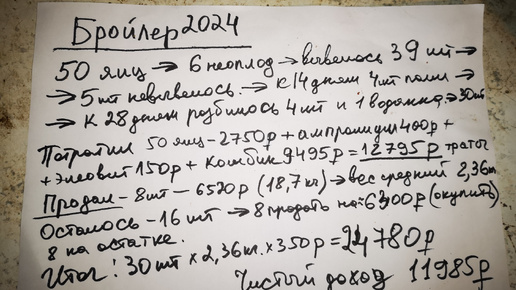 Бройлер 2024
50 яиц → 6 неоплод → вывелось 39 шт →
→ 5 шт невывелось. → К 14 дням 4 шт пали →
→ К 28 дням разбилось 4 шт и 1 водянка → 30 шт
Потратил 50 яиц - 2750р + ампролиум 400р +
+ энсовит 150р + комбик 9495р = 12795р тратог
Продал - 8 шт - 6520р (18,7 кг) → вес средний 2,36 кг
Осталось - 16 шт → 8 продать на = 6300р (окупить)
8 на остатке.
Итог! 30 шт × 2,36 кг. × 350р = 24780р
Чистый доход 11985р